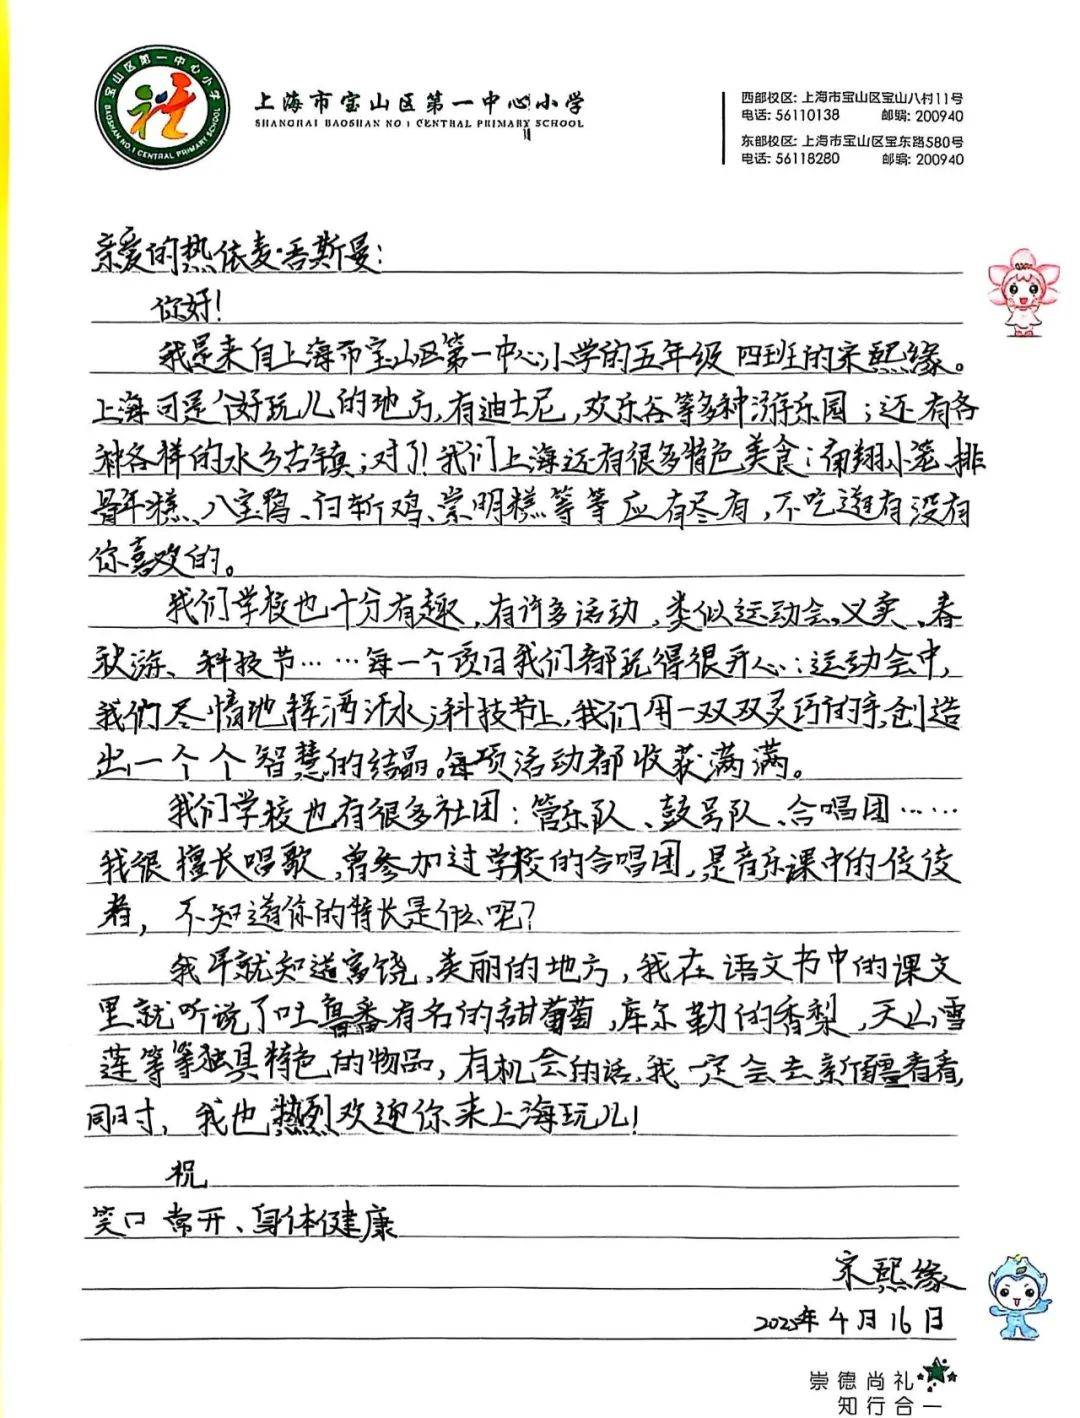 宝山区第一中心小学
BAOSHAN NO.1 CENTRAL PRIMARY SCHOOL
上海市宝山区第一中心小学
SHANGHAI BAOSHAN NO.1 CENTRAL PRIMARY SCHOOL
西部校区: 上海市宝山区宝山八村11号
电话: 56110138 邮编: 200940
东部校区: 上海市宝山区宝东路580号
电话: 56118280 邮编: 200940
亲爱的热依麦·吾斯曼:
你好!
我是来自上海市宝山区第一中心小学的五年级四班的宋熙缘。
上海可是个好玩儿的地方,有迪士尼,欢乐谷等多种游乐园;还有各
种各样的水乡古镇;对了!我们上海还有很多特色美食:南翔小笼、排
骨年糕、八宝鸭、白斩鸡、崇明糕等等应有尽有,不吃道有没有
你喜欢的。
我们学校也十分有趣,有许多活动,类似运动会、义卖、春
秋游、科技节……每一个项目我们都玩得很开心:运动会中,
我们尽情地挥洒汗水;科技节上,我们用一双双灵巧的手,创造
出一个个智慧的结晶。每项活动都收获满满。
我们学校也有很多社团:管乐队、鼓号队、合唱团……
我很擅长唱歌,曾参加过学校的合唱团,是音乐课中的佼佼
者,不知道你的特长是什么呢?
我早就知道富饶,美丽的地方,我在语文书中的课文
里就听说了吐鲁番有名的甜葡萄,库尔勒的香梨,天山雪
莲等等独具特色的物品,有机会的话,我一定会去新疆看看,
同时,我也热烈欢迎你来上海玩儿!
祝
笑口常开、身体健康
宋熙缘
2025年4月16日
崇德尚礼
知行合一